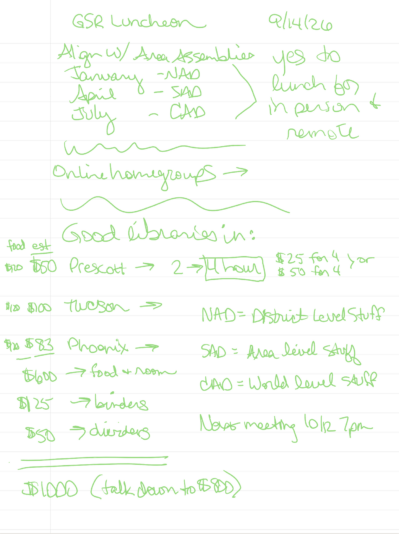 GSR Luncheon 9/14/26
Align w/ Area Assemblies
January - NAD
April - SAD
July - CAD
yes to
lunch for
in person &
remote
Online homegroups →
Good libraries in:
food est
$120 $50 Prescott → 2 → 4 hour $25 for 4 > or
$50 for 4
$120 $100 Tucson →
$120 $83 Phoenix →
$600 → food & room
$125 → binders
$50 → dividers
NAD = District Level Stuff
SAD = Area level stuff
CAD = World level stuff
Next meeting 10/12 7pm
$1000 (talk down to $800)